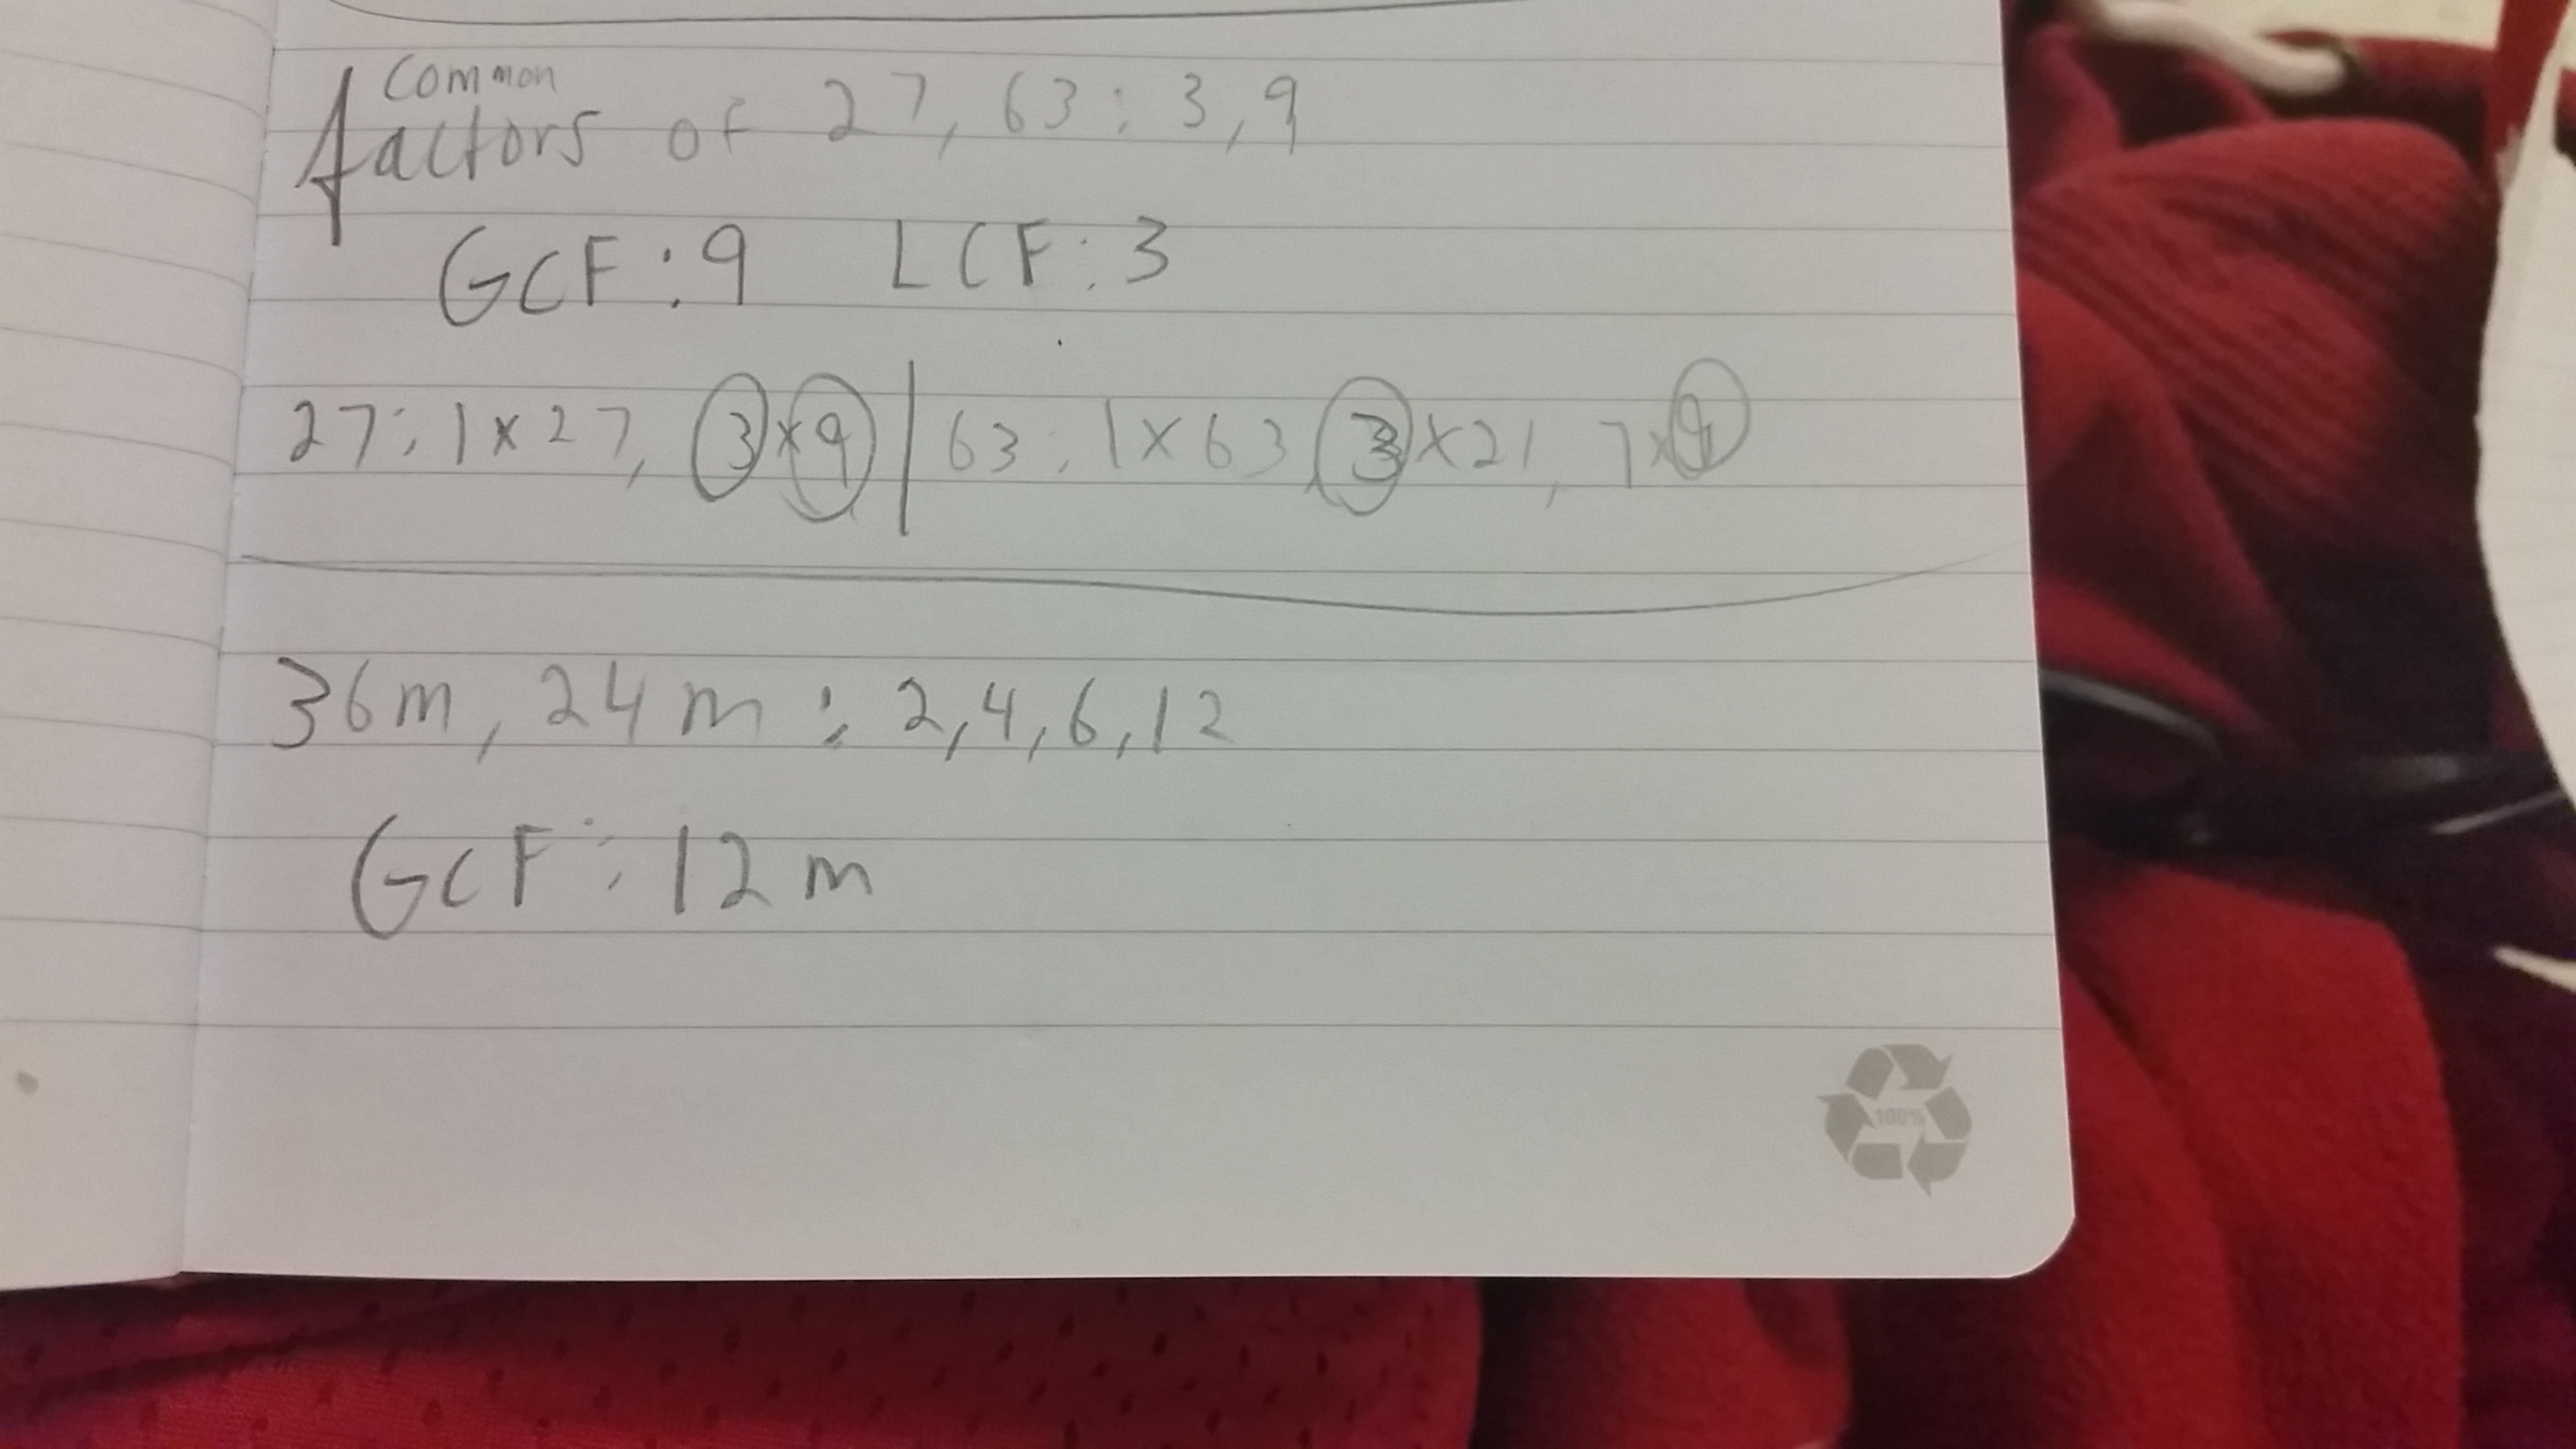 Common
factors of 27, 63 : 3, 9
GCF : 9 LCF : 3
27 : 1 x 27, 3 x 9 | 63 : 1 x 63, 3 x 21, 7 x 9
36m, 24m : 2, 4, 6, 12
GCF : 12m
100%